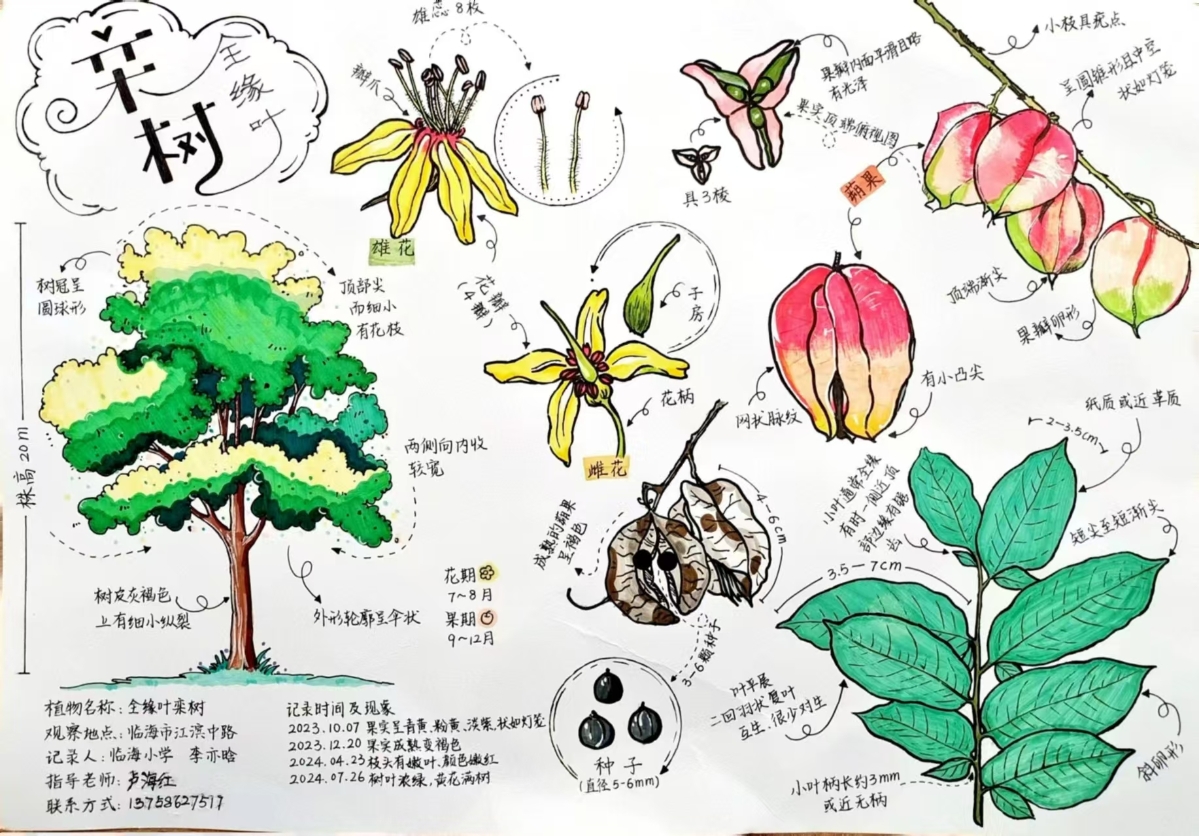 栾树
全缘叶
雄蕊8枚
瓣爪
雄花
花瓣
(4瓣)
果瓣内面平滑且略
有光泽
果实顶端俯视图
具3棱
蒴果
小枝具疣点
呈圆锥形且中空
状如灯笼
顶端渐尖
果瓣卵形
树冠呈
圆球形
顶部尖
而细小
有花枝
株高20m
两侧向内收
较宽
树皮灰褐色
上有细小纵裂
外形轮廓呈伞状
子房
花柄
雌花
网状脉纹
有小凸尖
成熟的蒴果
呈褐色
4-6cm
3-6颗种子
种子
(直径5-6mm)
花期
7~8月
果期
9~12月
纸质或近革质
2-3.5cm
小叶通常全缘
有时一侧近顶
部边缘有锯
齿
短尖至短渐尖
3.5-7cm
叶平展
二回羽状复叶
互生、很少对生
小叶柄长约3mm
或近无柄
斜卵形
植物名称:全缘叶栾树
观察地点:临海市江滨中路
记录人:临海小学 李亦晗
指导老师:卢海红
联系方式:13758627517
记录时间及现象
2023.10.07 果实呈青黄、粉黄、淡紫,状如灯笼
2023.12.20 果实成熟变褐色
2024.04.23 枝头有嫩叶、颜色嫩红
2024.07.26 树叶浓绿,黄花满树